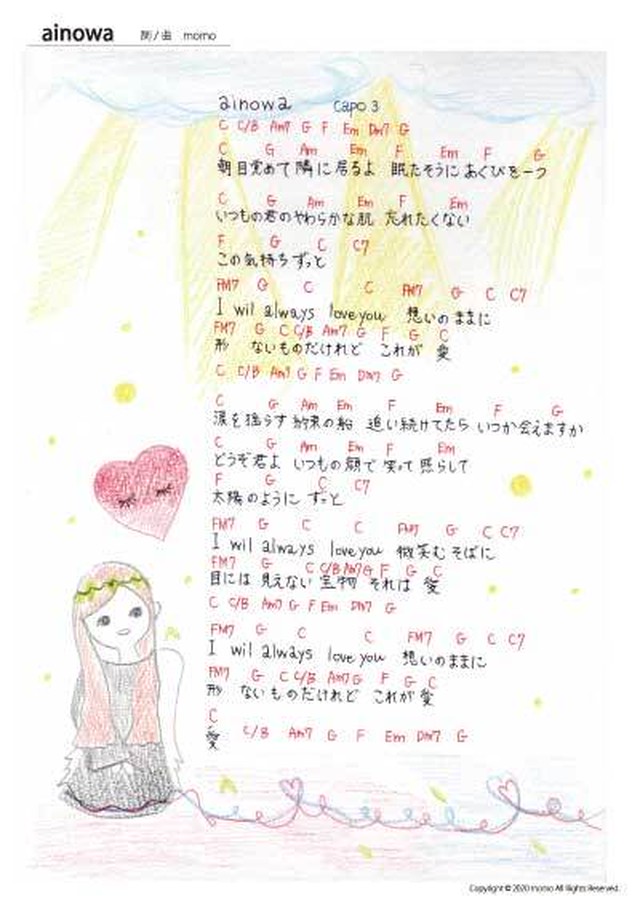 ainowa 詞/曲 momo
ainowa Capo 3
C C/B Am7 G F Em Dm7 G
C G Am Em F Em F G
朝目覚めて隣に居るよ 眠たそうにあくびを一つ
C G Am Em F Em
いつもの君のやわらかな肌 忘れたくない
F G C C7
この気持ちずっと
FM7 G C C FM7 G C C7
I wil always love you 想いのままに
FM7 G C C/B Am7 G F G C
形 ないものだけれど これが 愛
C C/B Am7 G F Em Dm7 G
C G Am Em F Em F G
涙を揺らす約束の船 追い続けてたら いつか会えますか
C G Am Em F Em
どうぞ君よ いつもの顔で 笑って 照らして
F G C C7
太陽のように ずっと
FM7 G C C FM7 G C C7
I wil always love you 微笑む そばに
FM7 G C C/B Am7 G F G C
目には 見えない 宝物 それは 愛
C C/B Am7 G F Em Dm7 G
FM7 G C C FM7 G C C7
I wil always love you 想いのままに
FM7 G C C/B Am7 G F G C
形 ないものだけれど これが 愛
C
愛 C/B Am7 G F Em Dm7 G
Copyright © 2020 momo All Rights Reserved.